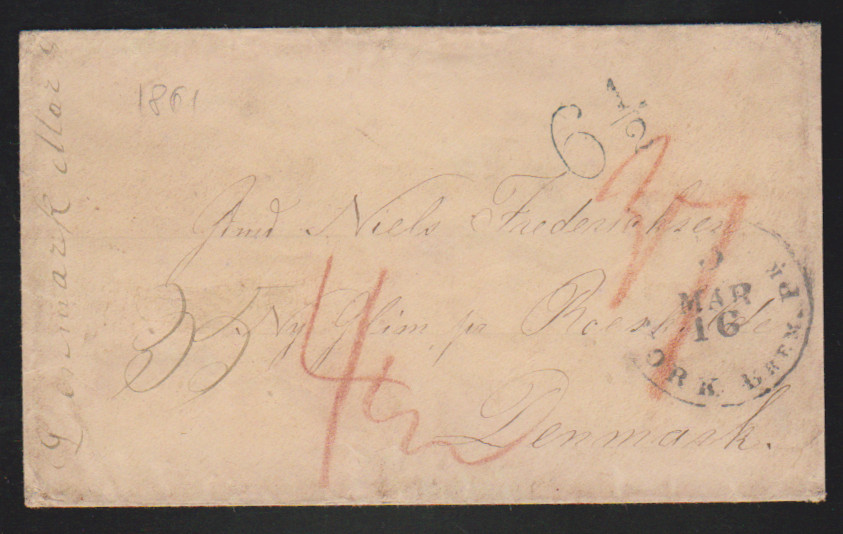 Denmark Mar
1861
6 1/2
37
Niels Frederichsen
Ny Glim pr Roeskilde
33
4
Denmark.
5
MAR
16
ORK BREM. PK